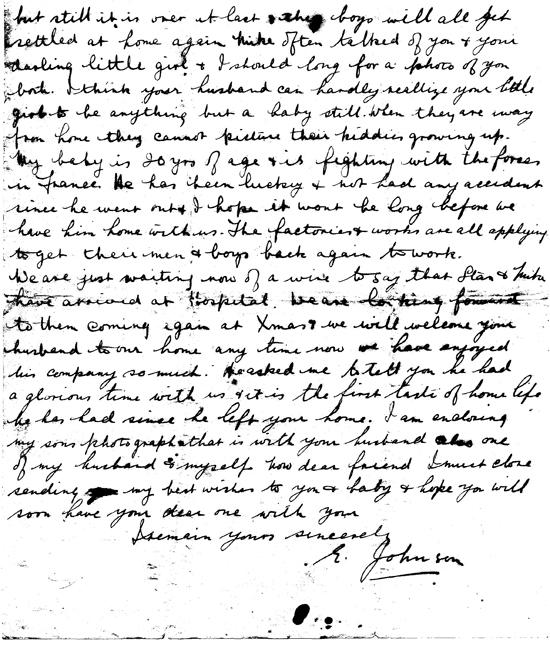 but still it is over at last & the boys will all get
settled at home again Mike often talked of you & your
darling little girl & I should long for a photo of you
both. I think your husband can hardly reallize your little
girl to be anything but a baby still. When they are away
from home they cannot picture their kiddies growing up.
My baby is 20 yrs of age & is fighting with the forces
in France. He has been luckey & not had any accident
since he went out & I hope it wont be long before we
have him home with us. The factories & works are all applying
to get their men & boys back again to work.
We are just waiting now of a wire to say that Stan & Mike
have arrived at Hospital. We are looking forward
to them coming again at Xmas & we will welcome your
husband to our home any time now we have enjoyed
his company so much. He asked me to tell you he had
a glorious time with us & it is the first taste of home life
he has had since he left your home. I am enclosing
my sons photograph that is with your husband also one
of my husband & myself now dear friend I must close
sending my best wishes to you & baby & hope you will
soon have your dear one with you
I remain yours sincerely
E. Johnson